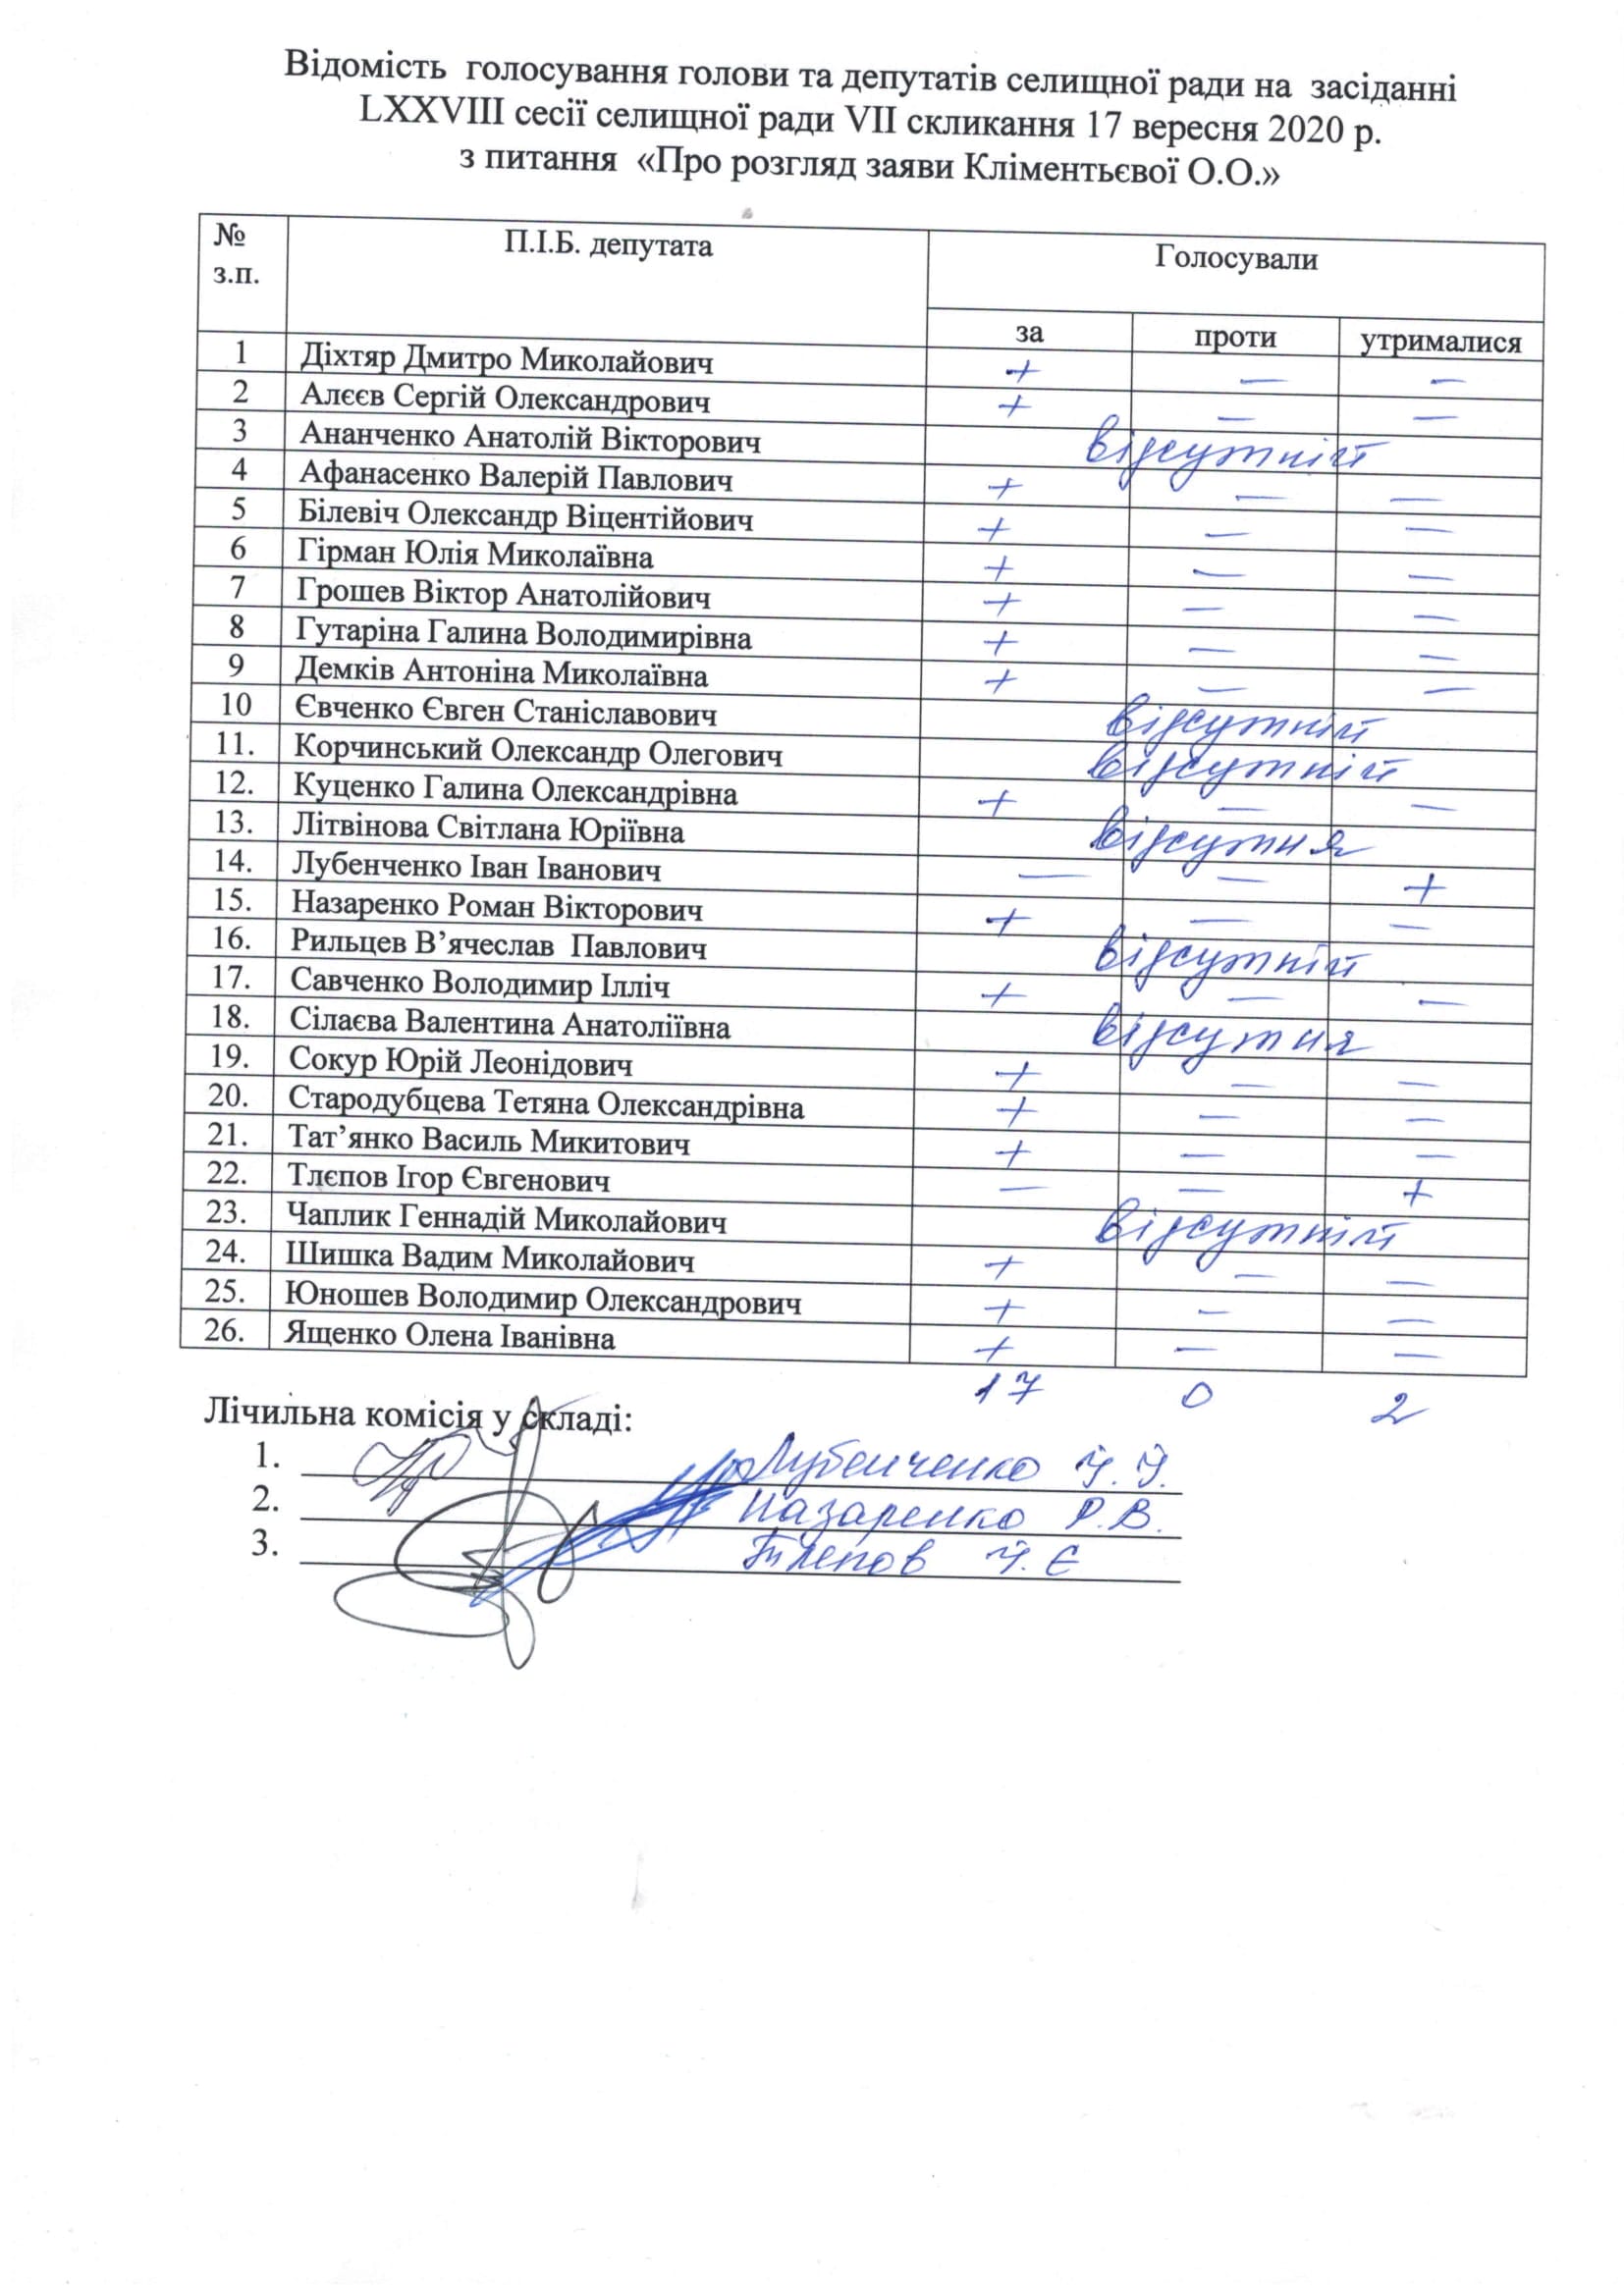 Відомість голосування голови та депутатів селищної ради на засіданні
LXXVIII сесії селищної ради VII скликання 17 вересня 2020 р.
з питання «Про розгляд заяви Кліментьєвої О.О.»
№ з.п. П.І.Б. депутата Голосували
за проти утрималися
1 Діхтяр Дмитро Миколайович + — —
2 Алєєв Сергій Олександрович + — —
3 Ананченко Анатолій Вікторович відсутній
4 Афанасенко Валерій Павлович + — —
5 Білевіч Олександр Віцентійович + — —
6 Гірман Юлія Миколаївна + — —
7 Грошев Віктор Анатолійович + — —
8 Гутаріна Галина Володимирівна + — —
9 Демків Антоніна Миколаївна + — —
10 Євченко Євген Станіславович відсутній
11. Корчинський Олександр Олегович відсутній
12. Куценко Галина Олександрівна + — —
13. Літвінова Світлана Юріївна відсутня
14. Лубенченко Іван Іванович — — +
15. Назаренко Роман Вікторович + — —
16. Рильцев В’ячеслав Павлович відсутній
17. Савченко Володимир Ілліч + — —
18. Сілаєва Валентина Анатоліївна відсутня
19. Сокур Юрій Леонідович + — —
20. Стародубцева Тетяна Олександрівна + — —
21. Тат’янко Василь Микитович + — —
22. Тлєпов Ігор Євгенович — — +
23. Чаплик Геннадій Миколайович відсутній
24. Шишка Вадим Миколайович + — —
25. Юношев Володимир Олександрович + — —
26. Ященко Олена Іванівна + — —
17 0 2
Лічильна комісія у складі:
1. Лубенченко І.І.
2. Назаренко Р.В.
3. Тлепов І.Є